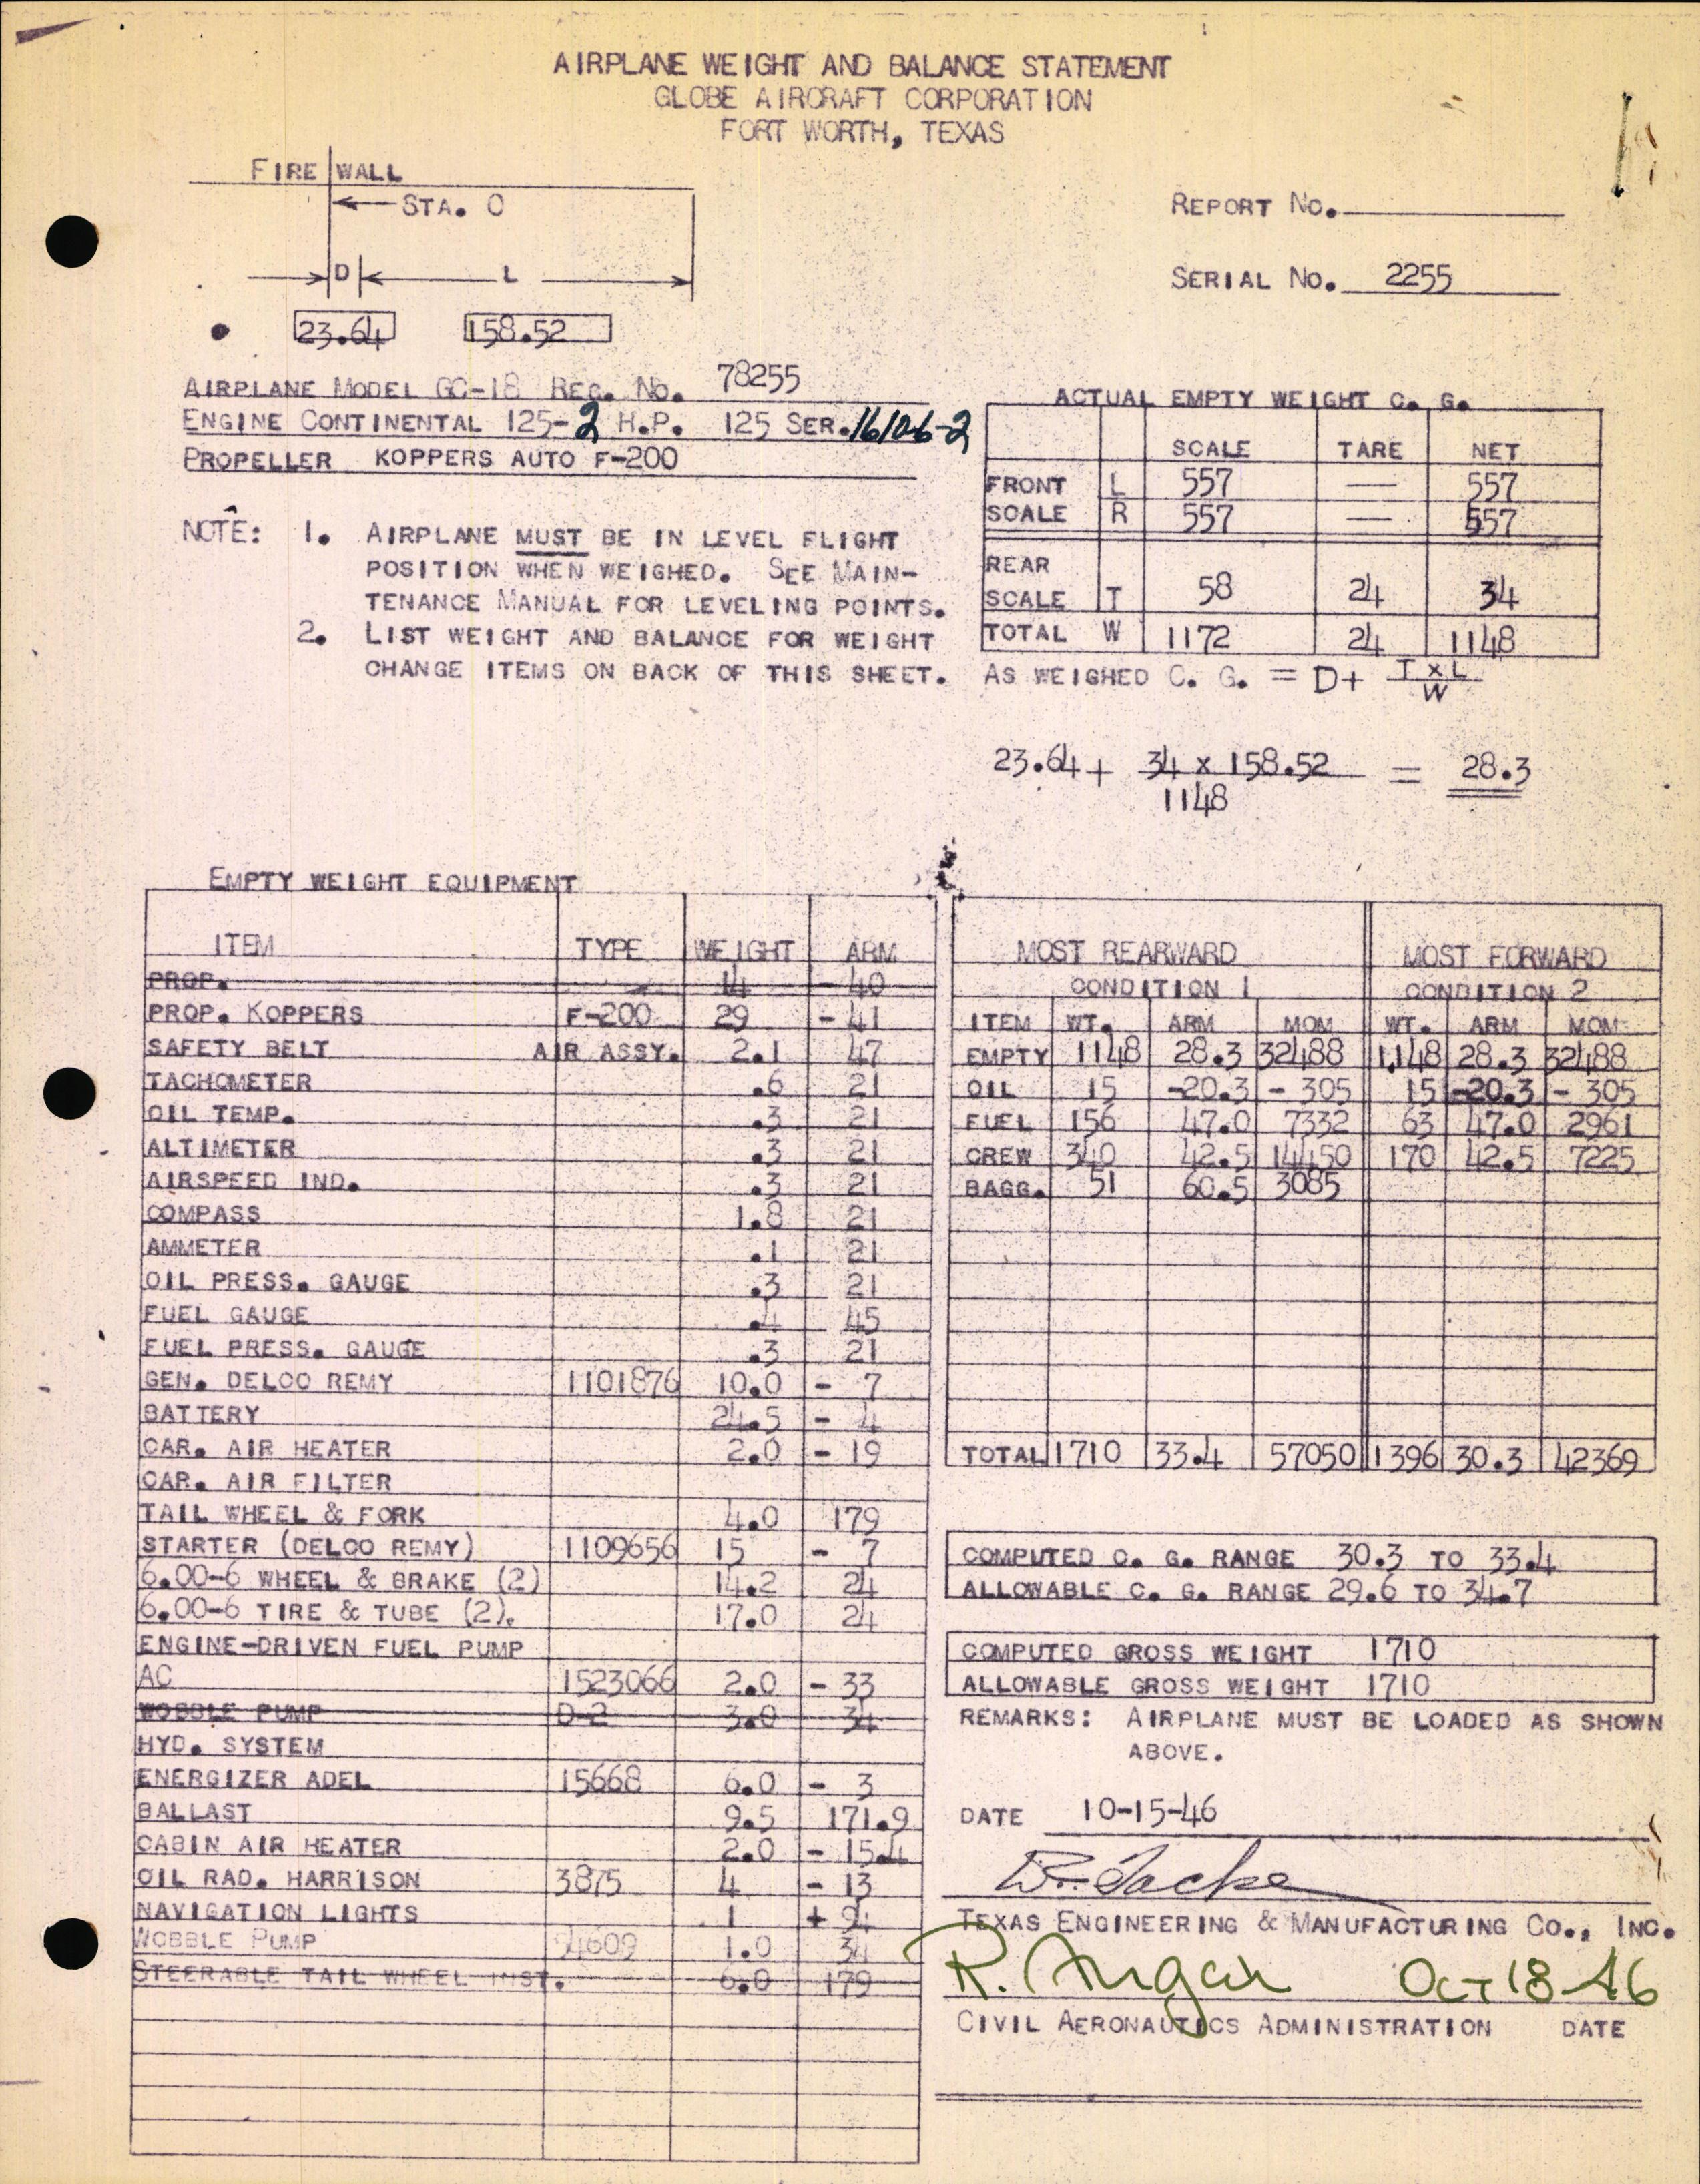 AIRPLANE WEIGHT AND BALANCE STATEMENT
GLOBE AIRCRAFT CORPORATION
FORT WORTH, TEXAS
FIRE WALL
STA. 0
REPORT NO.
D L
SERIAL NO. 2255
23.64 158.52
AIRPLANE MODEL GC-1B REG. NO. 78255
ENGINE CONTINENTAL 125-2 H.P. 125 SER. 16106-2
PROPELLER KOPPERS AUTO F-200
ACTUAL EMPTY WEIGHT C. G.
SCALE TARE NET
FRONT L 557 — 557
SCALE R 557 — 557
REAR
SCALE T 58 24 34
TOTAL W 1172 24 1148
AS WEIGHED C. G. = D+ T x L
W
NOTE: 1. AIRPLANE MUST BE IN LEVEL FLIGHT
POSITION WHEN WEIGHED. SEE MAIN-
TENANCE MANUAL FOR LEVELING POINTS.
2. LIST WEIGHT AND BALANCE FOR WEIGHT
CHANGE ITEMS ON BACK OF THIS SHEET.
23.64 + 34 x 158.52 = 28.3
1148
EMPTY WEIGHT EQUIPMENT
ITEM TYPE WEIGHT ARM
PROP. 14 - 40
PROP. KOPPERS F-200 29 - 41
SAFETY BELT AIR ASSY. 2.1 47
TACHOMETER .6 21
OIL TEMP. .3 21
ALTIMETER .3 21
AIRSPEED IND. .3 21
COMPASS 1.8 21
AMMETER .1 21
OIL PRESS. GAUGE .3 21
FUEL GAUGE .4 45
FUEL PRESS. GAUGE .3 21
GEN. DELCO REMY 1101876 10.0 - 7
BATTERY 24.5 - 4
CAR. AIR HEATER 2.0 - 19
CAR. AIR FILTER
TAIL WHEEL & FORK 4.0 179
STARTER (DELCO REMY) 1109656 15 - 7
6.00-6 WHEEL & BRAKE (2) 14.2 24
6.00-6 TIRE & TUBE (2). 17.0 24
ENGINE-DRIVEN FUEL PUMP
AC 1523066 2.0 - 33
WOBBLE PUMP D-2 3.0 34
HYD. SYSTEM
ENERGIZER ADEL 15668 6.0 - 3
BALLAST 9.5 171.9
CABIN AIR HEATER 2.0 - 15.4
OIL RAD. HARRISON 3875 4 - 13
NAVIGATION LIGHTS 1 + 94
WOBBLE PUMP 94609 1.0 34
STEERABLE TAIL WHEEL INST. 6.0 179
MOST REARWARD MOST FORWARD
CONDITION 1 CONDITION 2
ITEM WT. ARM MOM WT. ARM MOM
EMPTY 1148 28.3 32488 1148 28.3 32488
OIL 15 -20.3 - 305 15 -20.3 - 305
FUEL 156 47.0 7332 63 47.0 2961
CREW 340 42.5 14450 170 42.5 7225
BAGG. 51 60.5 3085
TOTAL 1710 33.4 57050 1396 30.3 42369
COMPUTED C. G. RANGE 30.3 TO 33.4
ALLOWABLE C. G. RANGE 29.6 TO 34.7
COMPUTED GROSS WEIGHT 1710
ALLOWABLE GROSS WEIGHT 1710
REMARKS: AIRPLANE MUST BE LOADED AS SHOWN
ABOVE.
DATE 10-15-46
TEXAS ENGINEERING & MANUFACTURING CO., INC.
OCT 18-46
CIVIL AERONAUTICS ADMINISTRATION DATE